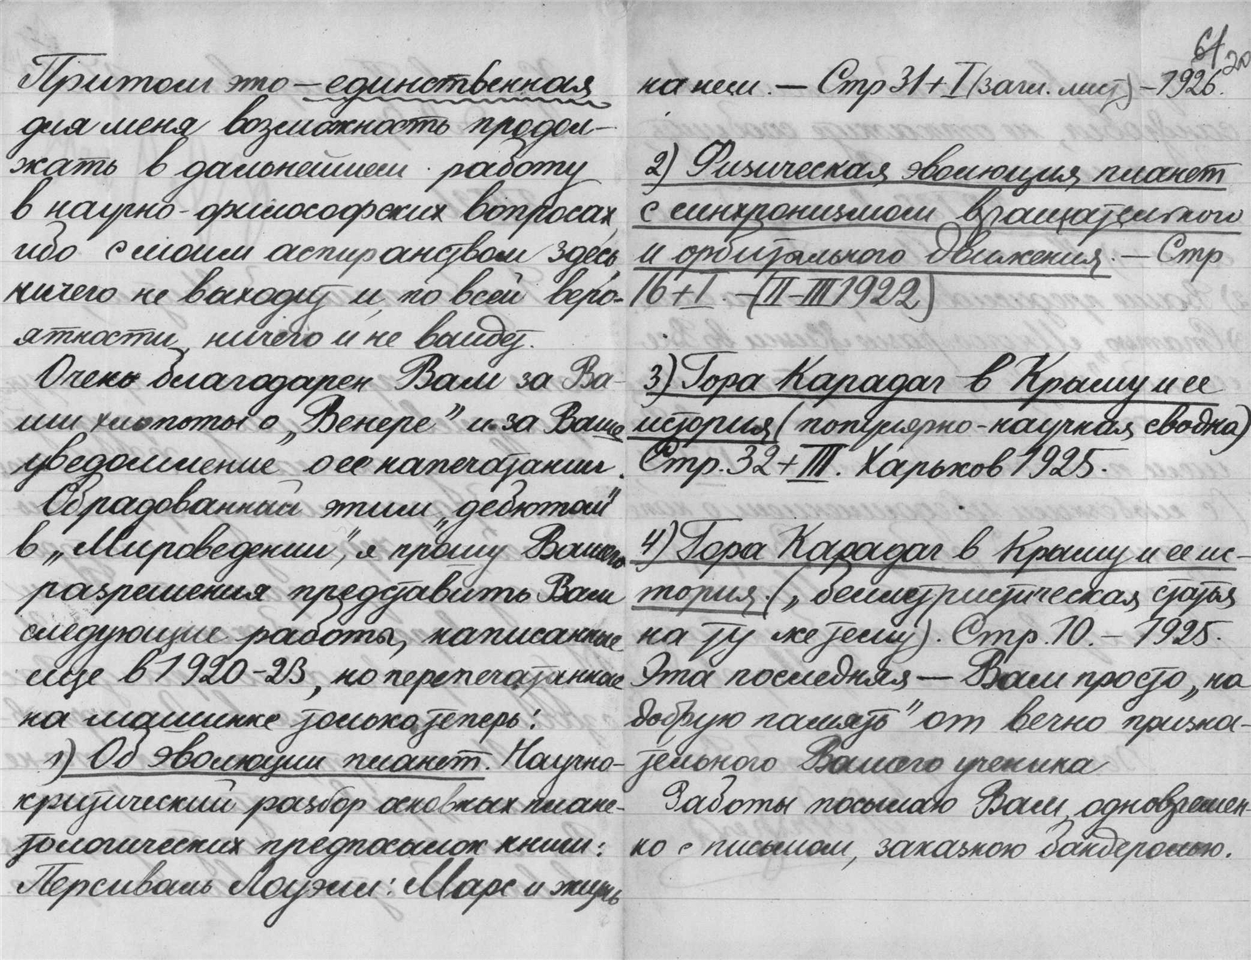 Притом это – единственная
для меня возможность продол-
жать в дальнейшем работу
в научно-философских вопросах,
ибо с моим аспирантством здесь
ничего не выходит и, по всей веро-
ятности, ничего и не выйдет.
Очень благодарен Вам за Ва-
ши хлопоты о „Венере" и за Ваше
уведомление о ее напечатании.
Обрадованный этим „дебютом"
в „Мироведении", я прошу Вашего
разрешения представить Вам
следующие работы, написанные
еще в 1920-23, но перепечатанные
на машинке только теперь:
1) Об эволюции планет. Научно-
критический разбор основных плане-
тологических предпосылок книги:
Персиваль Лоуэлл: Марс и жизнь
61
20
на нем. – Стр 31 + I (загл. лист) – 1926.
2) Физическая эволюция планет
с синхронизмом вращательного
и орбитального движения. – Стр
16 + I. – (II–III 1922)
3) Гора Карадаг в Крыму и ее
история (популярно-научная сводка)
Стр. 32 + III. Харьков 1925.
4) Гора Карадаг в Крыму и ее ис-
тория. („беллетристическая" статья
на ту же тему). Стр. 10. – 1925.
Эта последняя – Вам просто „на
добрую память" от вечно призна-
тельного Вашего ученика
Работы посылаю Вам, одновремен-
но с письмом, заказною бандеролью.